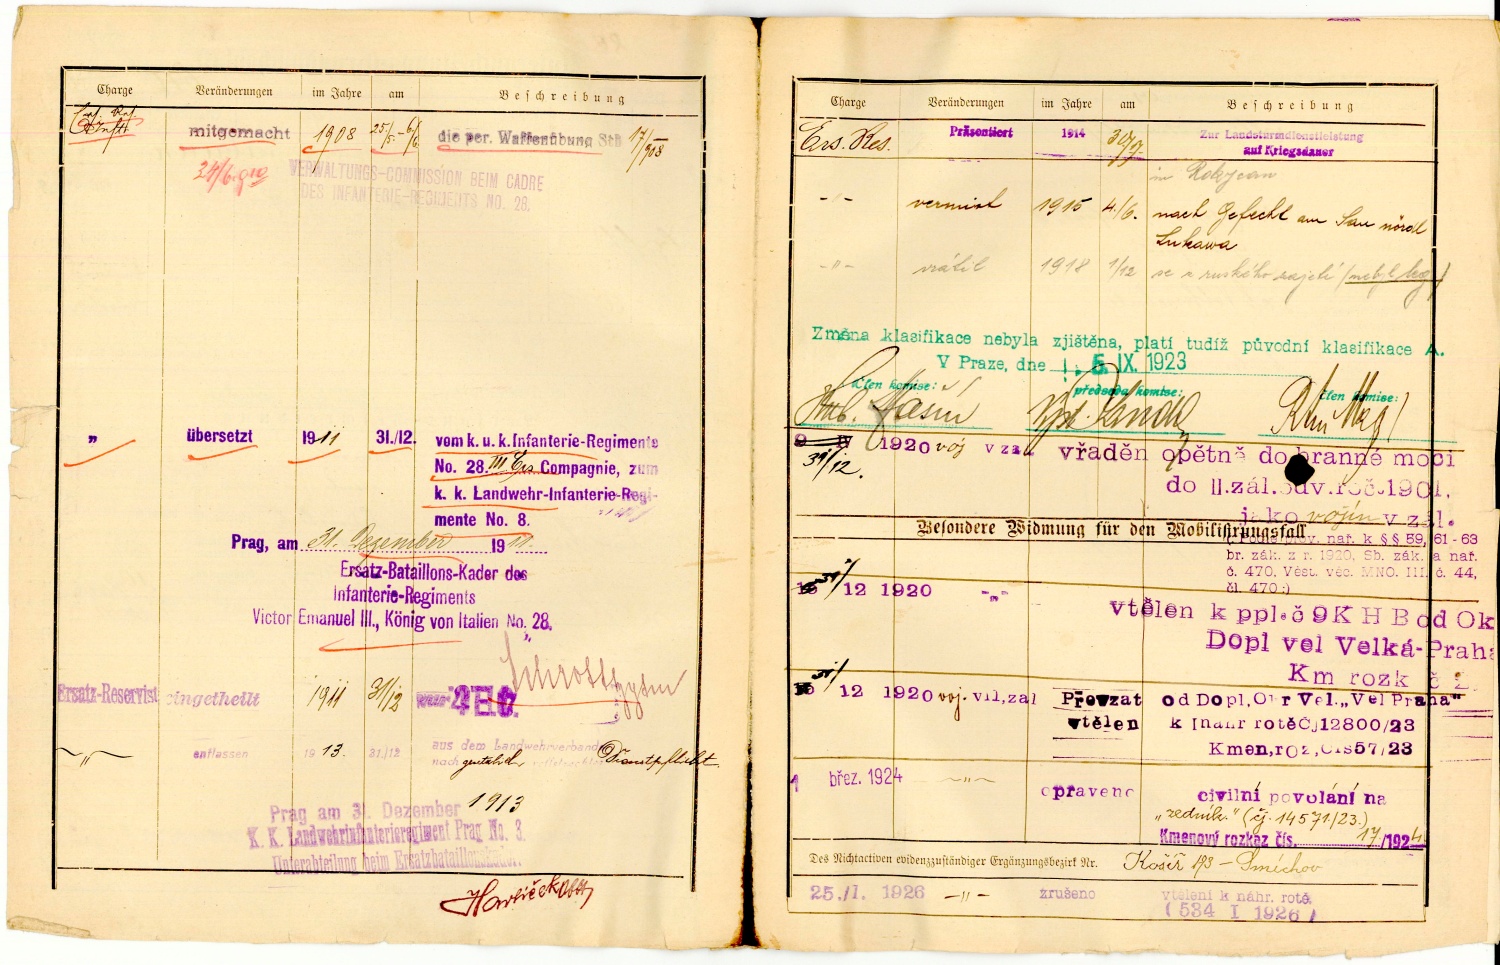 Charge Veränderungen im Jahre am Beschreibung
mitgemacht 1908 25/5-6/6 die per. Waffenübung Stb 17/908
24/6.910 VERWALTUNGS-COMMISSION BEIM CADRE
DES INFANTERIE-REGIMENTS No. 28.
„ übersetzt 1911 31./12. vom k. u. k. Infanterie-Regimente
No. 28. III Ers Compagnie, zum
k. k. Landwehr-Infanterie-Regi-
mente No. 8.
Prag, am 31. Dezember 1911.
Ersatz-Bataillons-Kader des
Infanterie-Regiments
Victor Emanuel III., König von Italien No. 28.
Ersatz-Reservist eingetheilt 1911 31/12
„ entlassen 1913. 31./12 aus dem Landwehrverbande
nach Dienstpflicht.
1913
Prag am 31. Dezember
K. K. Landwehrinfanterieregiment Prag No. 8.
Unterabteilung beim Ersatzbataillonskader.
Havlíček
Charge Veränderungen im Jahre am Beschreibung
Ers. Res. Präsentiert 1914 30/7. Zur Landsturmdienstleistung
auf Kriegsdauer
in
-„- vermisst 1915 4./6. nach Gefecht am San nördl
Lukawa
-„- vrátil 1918 1/12 se z ruského zajetí (nebyl leg)
Změna klasifikace nebyla zjištěna, platí tudíž původní klasifikace A.
V Praze, dne 5. IX. 1923
Člen komise: předseda komise: Člen komise:
9 IV 1920 voj v zál vřaděn opětně do branné moci
31/12. do II.zál.odv.roč.1901,
jako vojín v zál.
Besondere Widmung für den Mobilisirungsfall
(Podle prov. nař. k §§ 59, 61-63
br. zák. z r. 1920, Sb. zák. a nař.
č. 470, Věst. věc. MNO. III. č. 44,
čl. 470.)
31/12 1920 -„- vtělen k ppl.č 9 K H B od Ok
Dopl vel Velká-Praha
Km rozk č 2.
31/12 1920 voj. v II,zál Převzat od Dopl,Okr Vel.„Vel Praha“
vtělen k [nahr rotěČj12800/23
Kmen,roz,čís57/23
1 břez. 1924 -„- opraveno civilní povolání na
„zedník.“ (čj. 14571/23.)
Kmenový rozkaz čís. 17/1924.
Des Nichtactiven evidenzzuständiger Ergänzungsbezirk Nr. Košíř 193 - Smíchov
25./I. 1926 -„- zrušeno vtělení k náhr. rotě.
( 534 I 1926 )